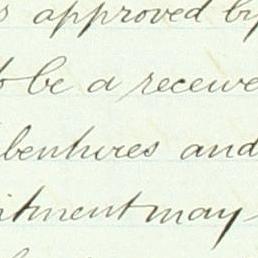 s approved by
to be a receive
bentures and
itment may